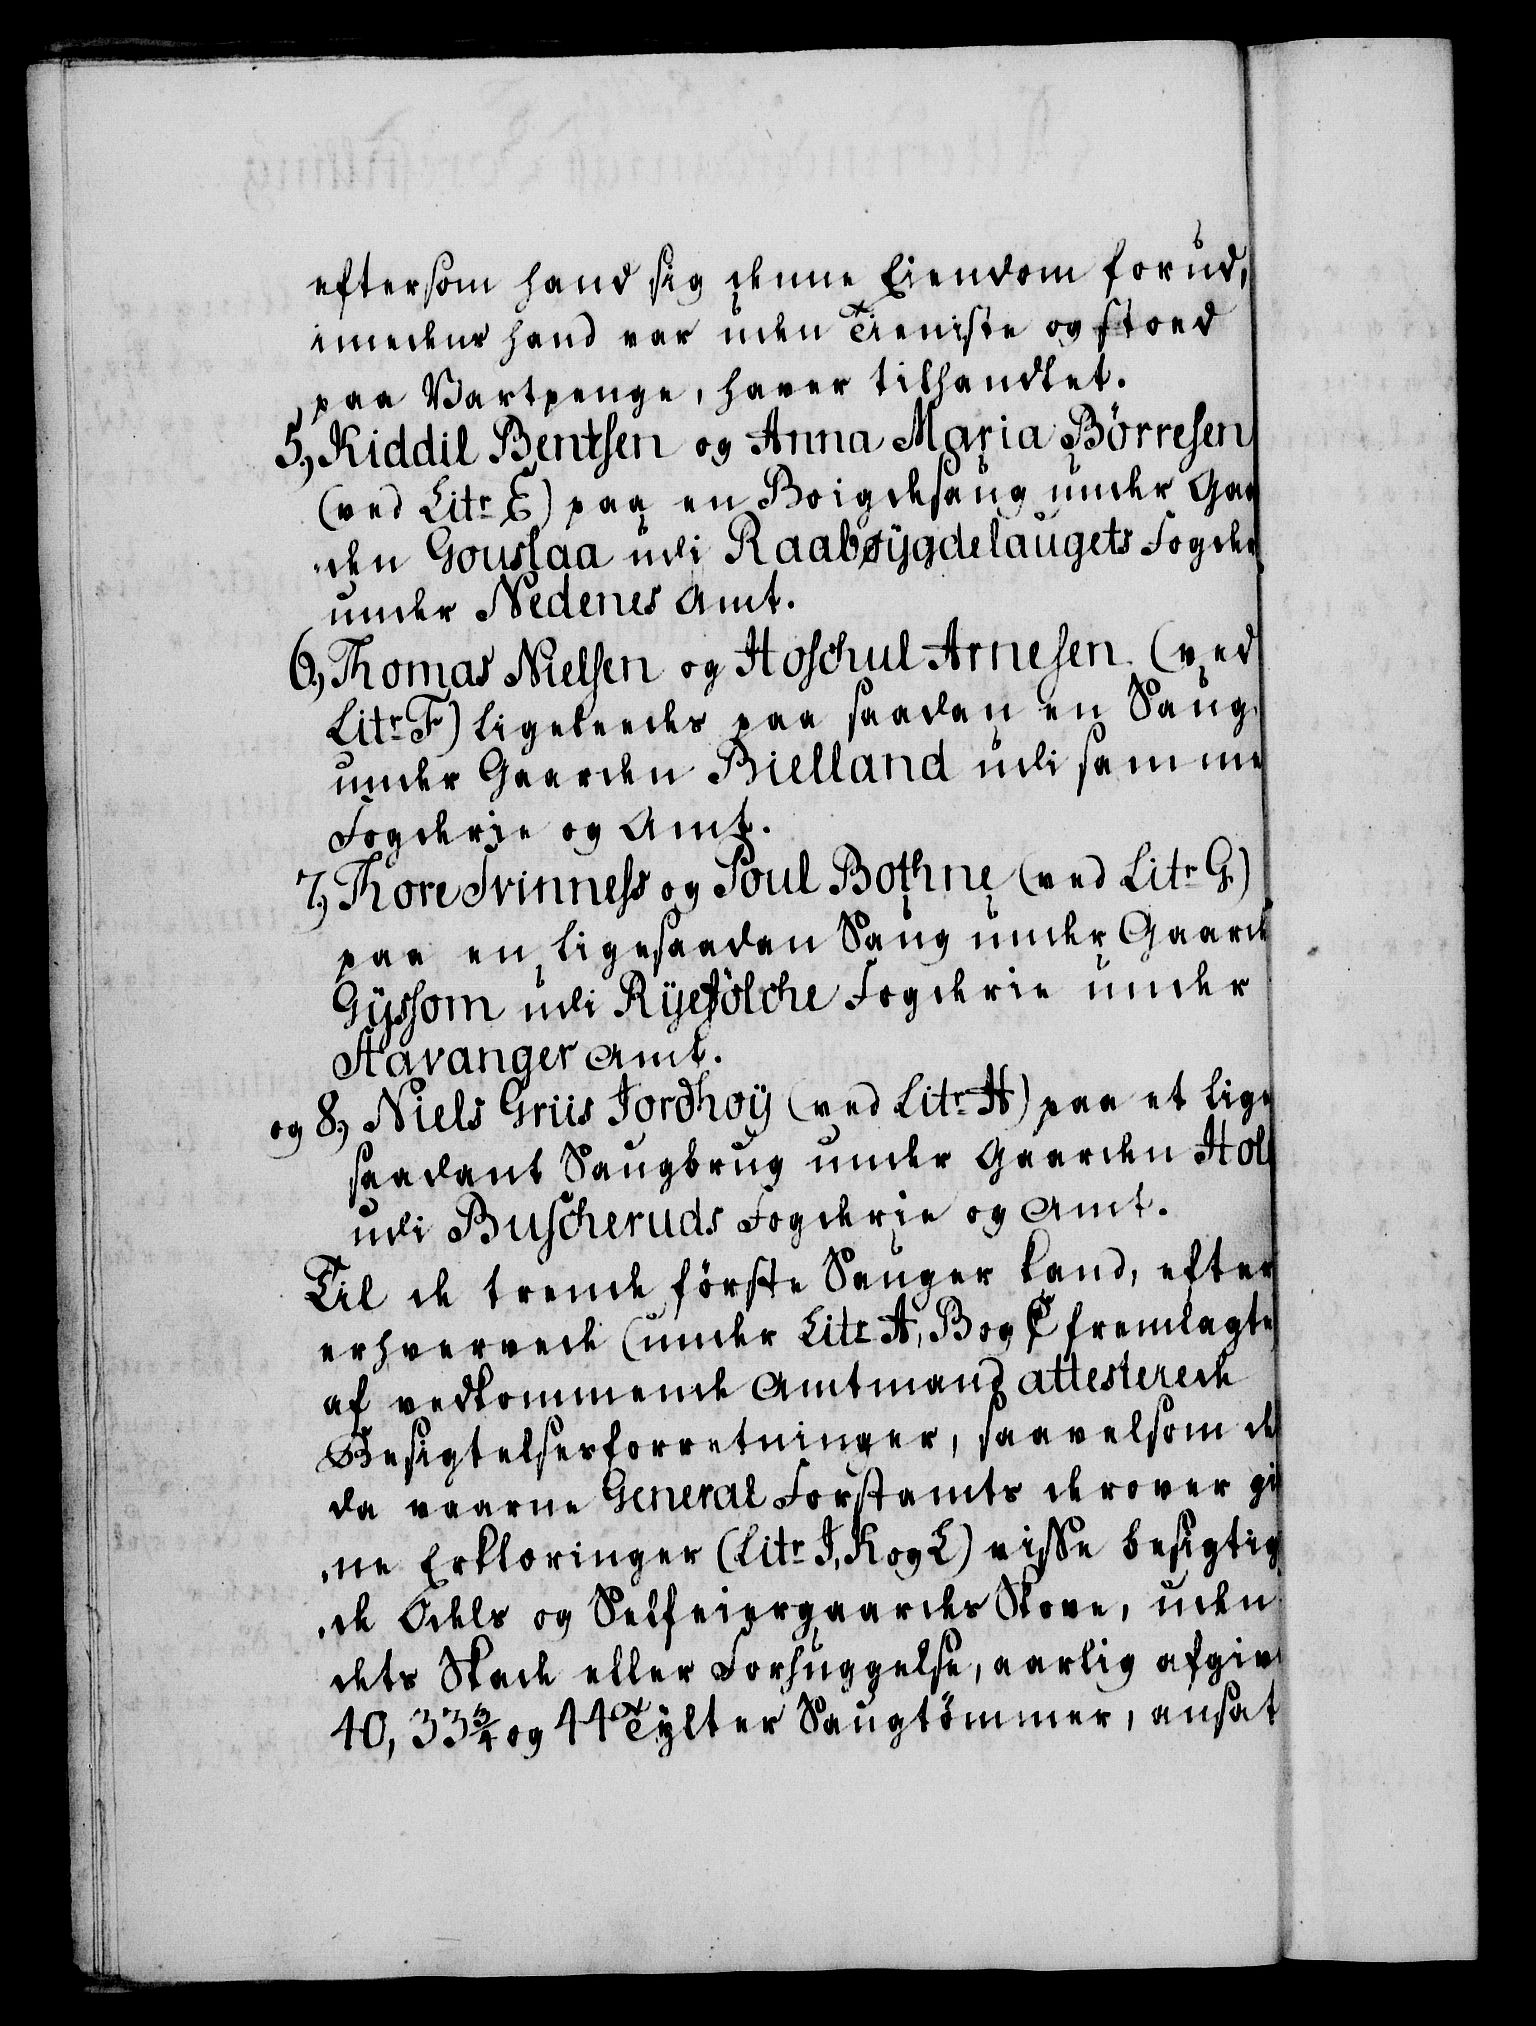 eftersom hand sig denne Eiendom forud,
imedens hand var uden Tieniste og stoed
paa Vartpenge, haver tilhandlet.
5, Kiddil Bentsen og Anna Maria Börresen
(ved Litr E) paa en Boigdesaug under Gaa
den Gouslaa udi Raabøygdelaugets Fogde
under Nedenes Amt.
6, Thomas Nielsen og Hoschul Arnesen (ved
Litr F) ligeleedes paa saadan en Saug
under Gaarden Bielland udi samme
Fogderie og Amt.
7, Thore Svinness og Poul Bothne (ved Litr G)
paa en ligesaadan Saug under Gaarde
Gÿssom udi Rÿefölche Fogderie under
Stavanger Amt.
og 8, Niels Griis Jordhoÿ (ved Litr H) paa et lige
saadant Saugbrug under Gaarden Hol
udi Buscheruds Fogderie og Amt.
Til de trende förste Sauger kand, efter
erhvervede (under Litr A, B og C fremlagte
af vedkommende Amtmand attesterede
Besigtelsesforretninger, saavelsom de
da vaarne General Forstamts derover gi
ne Erklæringer (Litr I, K og L) visse besigtig
de Odels og Selfeiergaardes Skove, uden
dets Skade eller Forhuggelse, aarlig afgive
40, 33 3/4 og 44 Tÿlter Saugtömmer, ansat